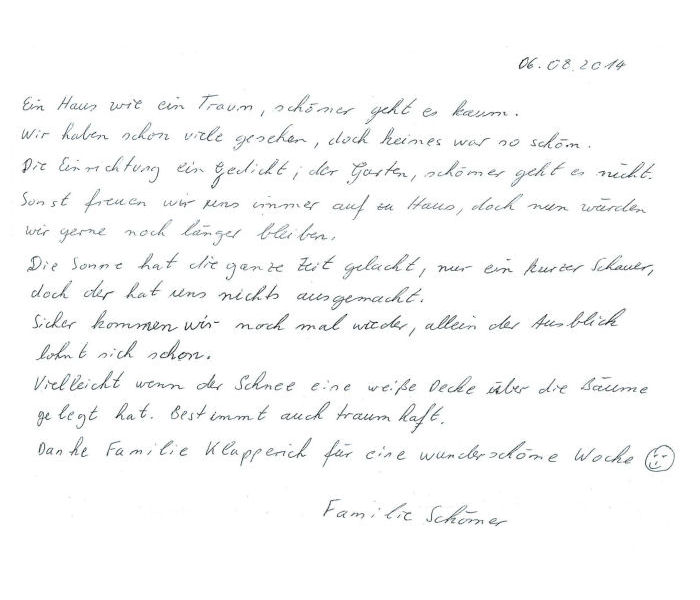 06.08.2014
Ein Haus wie ein Traum, schöner geht es kaum.
Wir haben schon viele gesehen, doch keines war so schön.
Die Einrichtung ein Gedicht; der Garten, schöner geht es nicht.
Sonst freuen wir uns immer auf zu Haus, doch nun würden
wir gerne noch länger bleiben.
Die Sonne hat die ganze Zeit gelacht, nur ein kurzer Schauer,
doch der hat uns nichts ausgemacht.
Sicher kommen wir noch mal wieder, allein der Ausblick
lohnt sich schon.
Vielleicht wenn der Schnee eine weiße Decke über die Bäume
gelegt hat. Bestimmt auch traumhaft.
Danke Familie Klapperich für eine wunderschöne Woche ☺
Familie Schömer